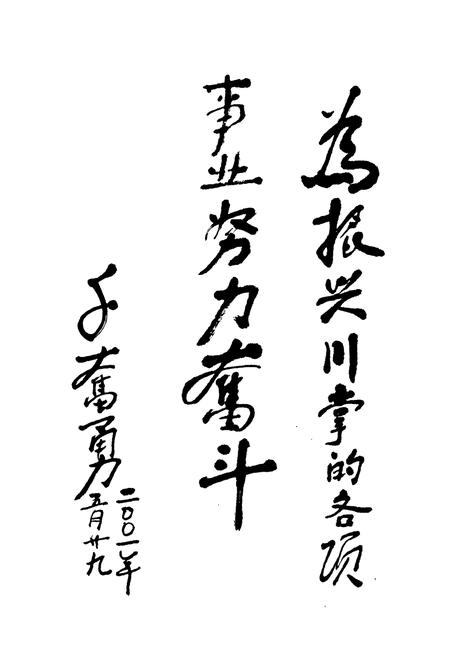 為振兴川掌的各项
事业努力奋斗
于奮勇
二〇〇一年
五月廿九